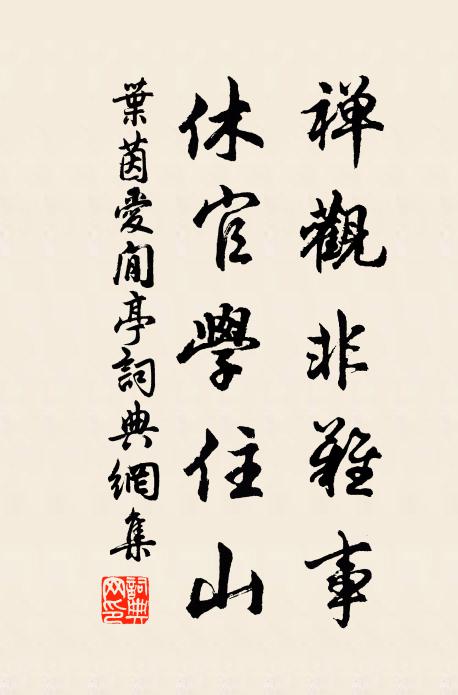 禅觀非難事
休官學住山
葉茵愛閒亭詞典網集
詞典网印